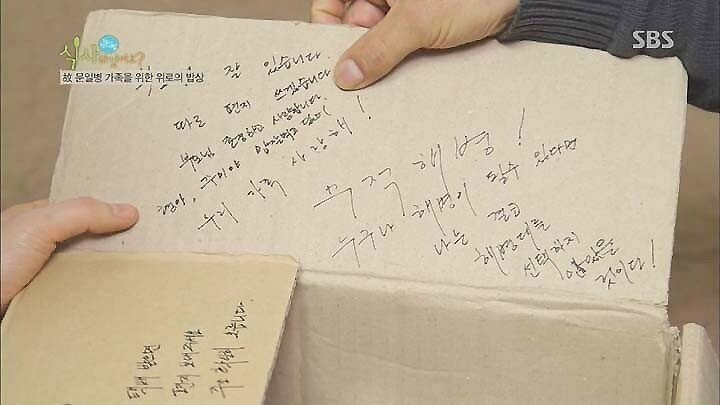 식사하셨어요?
故 문일병 가족을 위한 위로의 밥상
SBS
잘 있습니다.
따로 편지 쓰겠습니다.
부모님 존경하고 사랑합니다.
우리 가족 사랑해!
무적 해병!
누구나 해병이 될수 있다면
나는 결코
해병대를
선택하지
않았을
것이다!
택배 받으면
편지 보내주세요